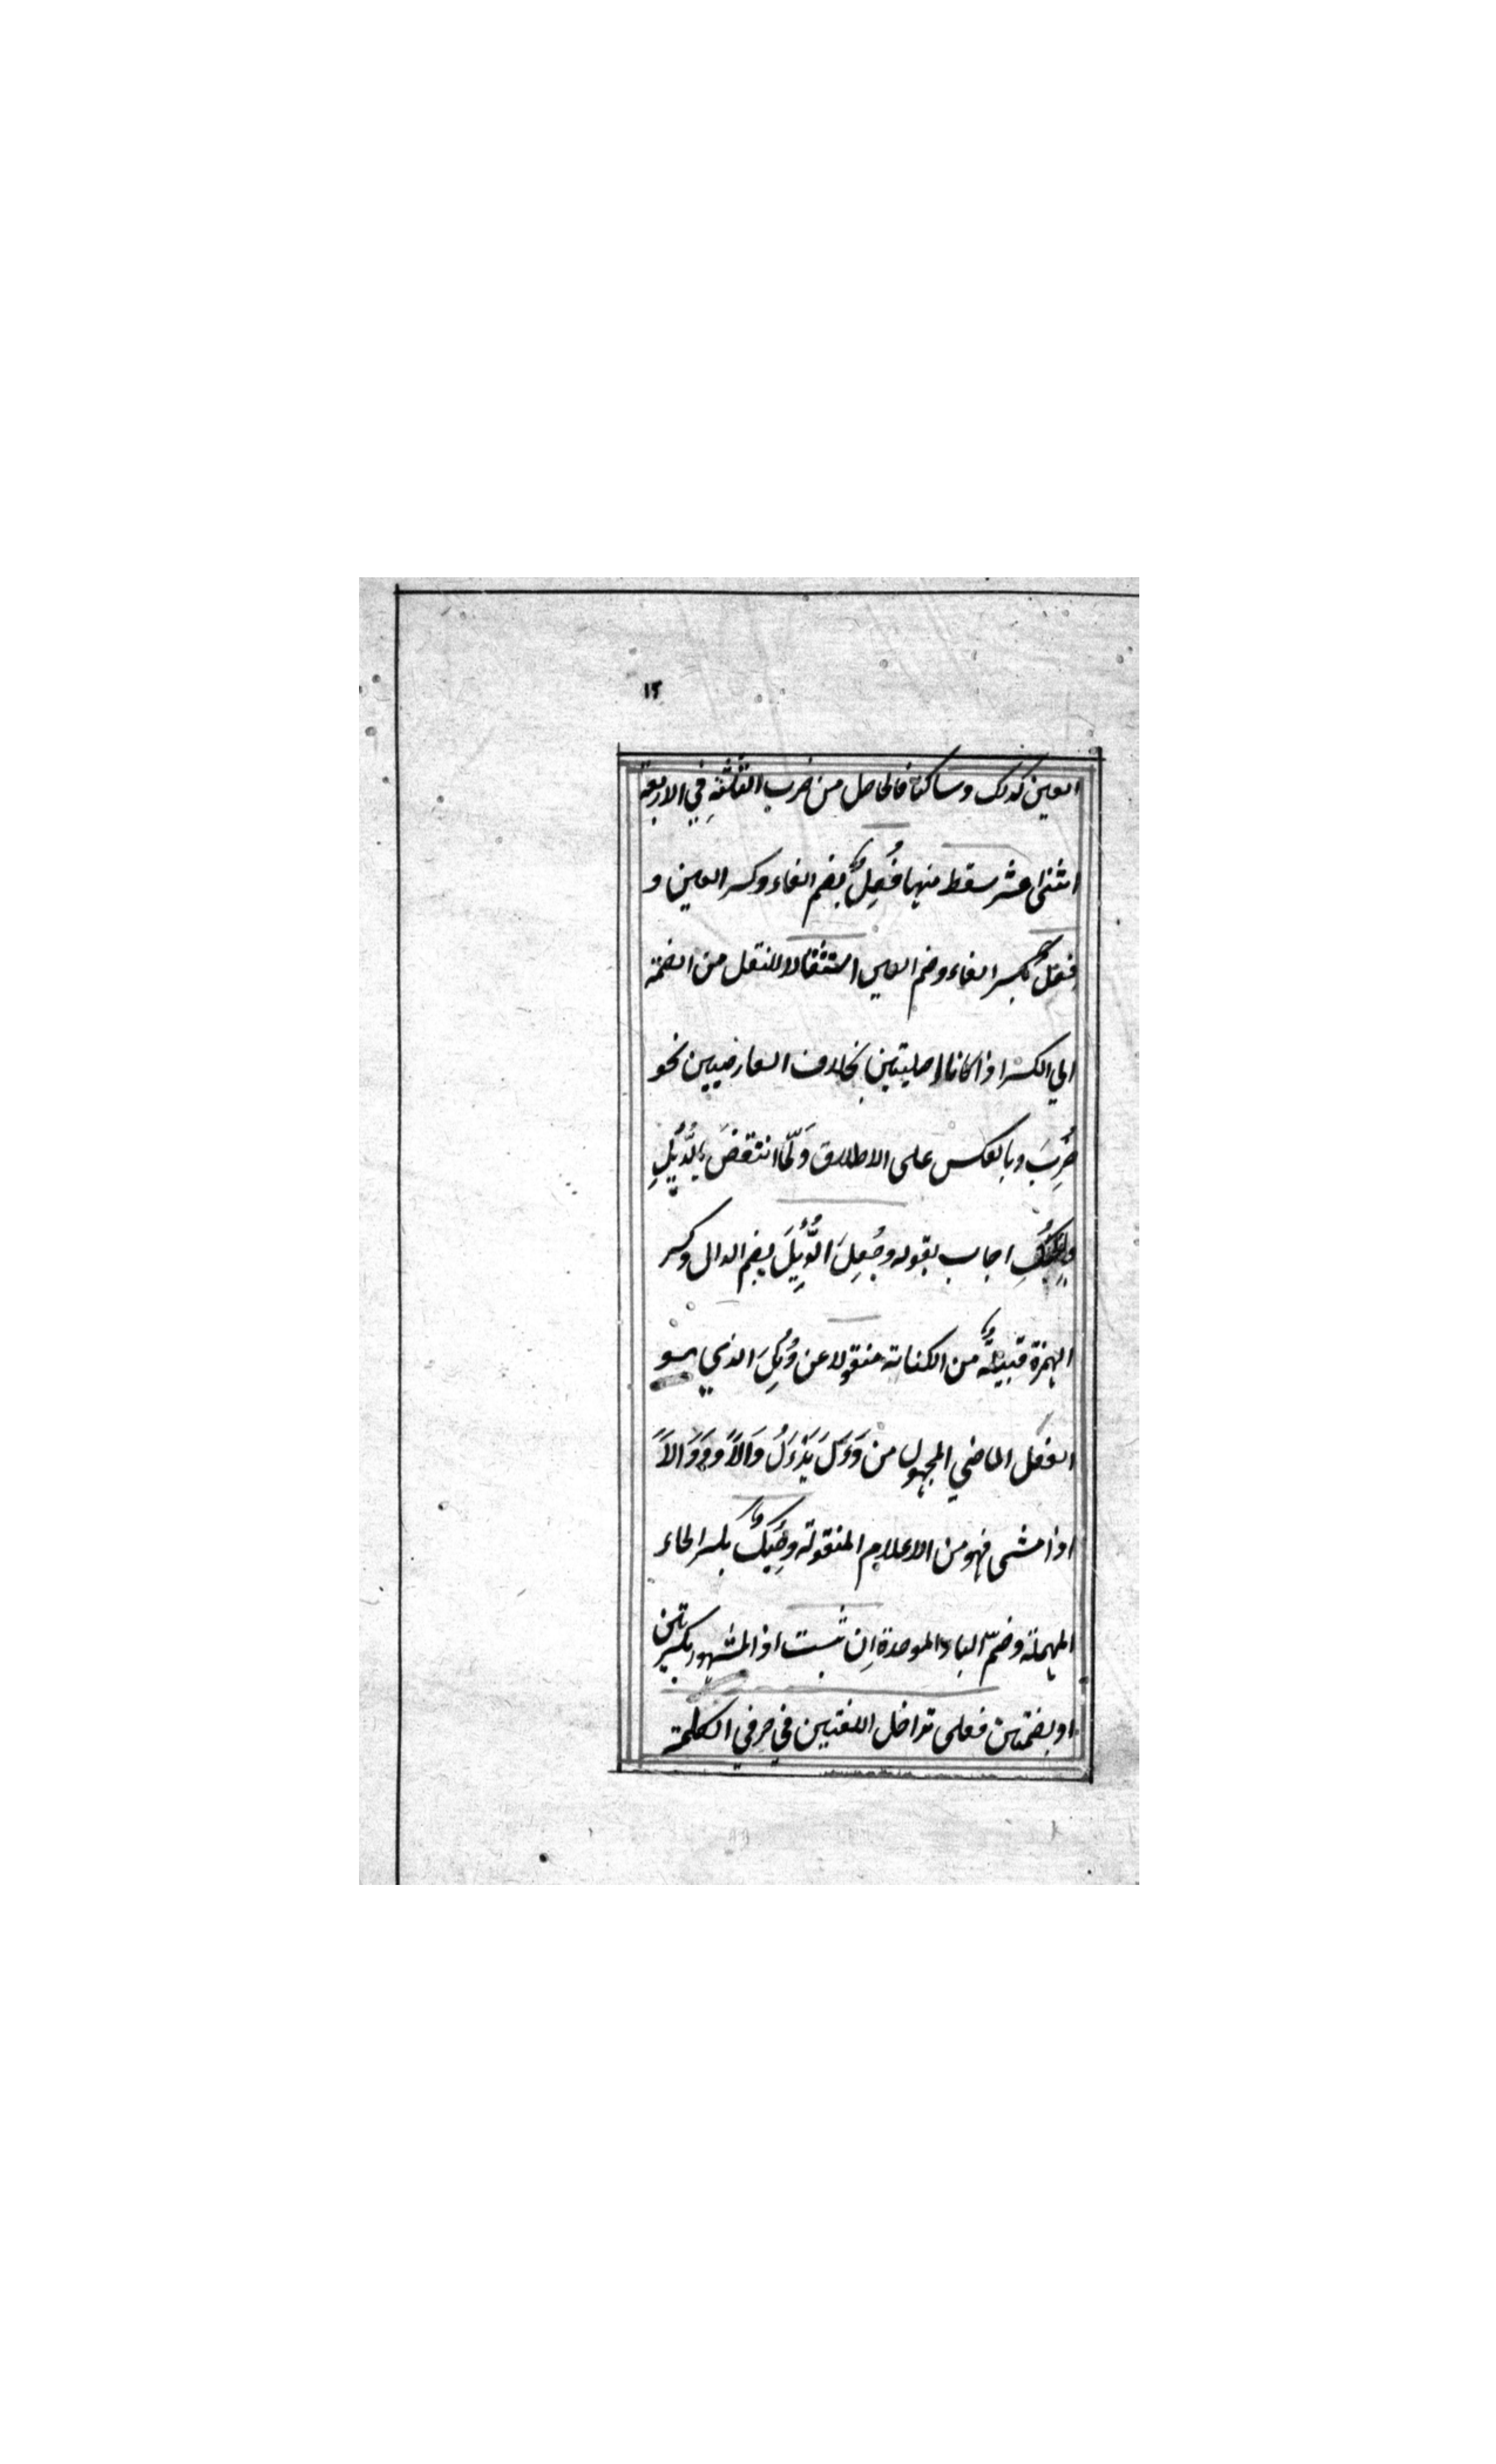 ١٢
العين كذلك وساكنة فالحاصل من ضرب الثلثةِ فِي الاربعة
اثنا عشر سقط منها فُعِلٌ بضم الفاء وكسر العين و
فِعُلٌ بكسر الفاء وضم العين استثقالا للنقل من الضمة
الي الكسر اذا كانا اصليتين بخلاف العارضيين نحو
ضُرِبَ وبالعكس على الاطلاق وَلَمّا انتقضَ بِالدُّئِلِ
اجاب بقوله وجُعِلَ الدُّئِلَ بضم الدال وكسر
الهمزة قبيلةٌ من الكنانة منقولا عن دُئِلَ الذي هو
الفعل الماضي المجهول من دَءَلَ يَدْءَلُ دَالاً ودَءَالاً
اذا مشى فهو من الاعلام المنقولة وحِبُكٌ بكسر الحاء
المهملة وضمّ الباء الموحدة اِن ثبت اذ المشهور بكسرتين
او بضمتين فعلى تداخل اللغتين في حرفي الكلمة